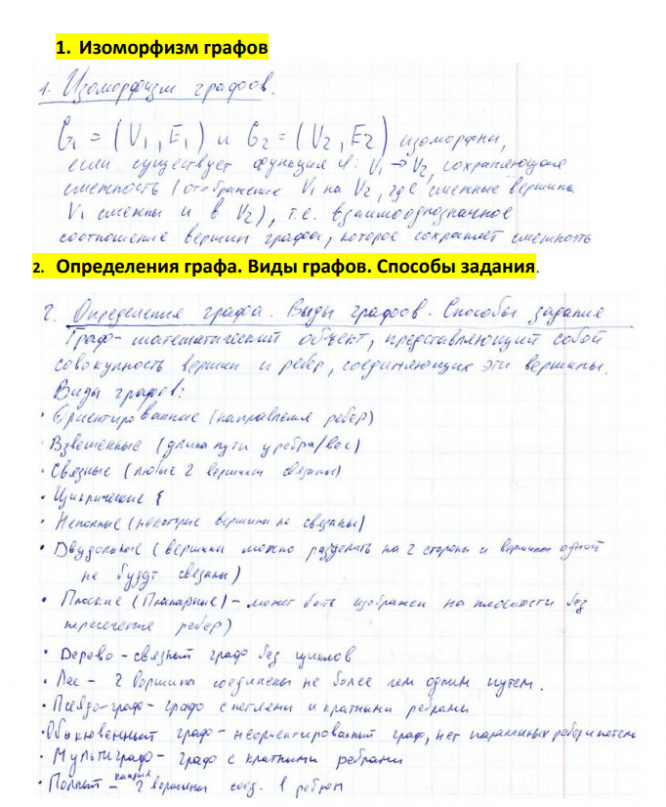 1. Изоморфизм графов
1. Изоморфизм графов.
G₁ = (V₁, E₁) и G₂ = (V₂, E₂) изоморфны,
если существует функция φ: V₁ → V₂, сохраняющая
смежность (отображение V₁ на V₂, где смежные вершины
V₁ смежны и в V₂), т.е. взаимооднозначное
соотношение вершин графа, которое сохраняет смежность
2. Определения графа. Виды графов. Способы задания.
2. Определения графа. Виды графов. Способы задания
Граф - математический объект, представляющий собой
совокупность вершин и ребер, соединяющих эти вершины.
Виды графов:
• Ориентированные (направления ребер)
• Взвешенные (длина пути у ребра/вес)
• Связные (любые 2 вершины связаны)
• Циклические
• Неполные (некоторые вершины не связаны)
• Двудольные (вершины можно разделить на 2 стороны и вершины одной
не будут связаны)
• Плоские (Планарные) - может быть изображен на плоскости без
пересечения ребер)
• Дерево - связный граф без циклов
• Лес - 2 вершины соединены не более чем одним путем.
• Псевдо-граф - граф с петлями и кратными ребрами
• Обыкновенный граф - неориентированный граф, нет параллельных ребер и петель
• Мультиграф - граф с кратными ребрами
• Полный - каждые 2 вершины соед. 1 ребром